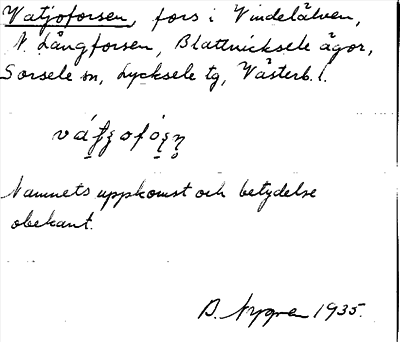 Vatjoforsen, fors i Vindelälven,
N. Långforsen, Blattnicksele ägor,
Sorsele sn, Lycksele tg, Västerb. l.
Namnets uppkomst och betydelse
obekant.
B. Nygren 1935.